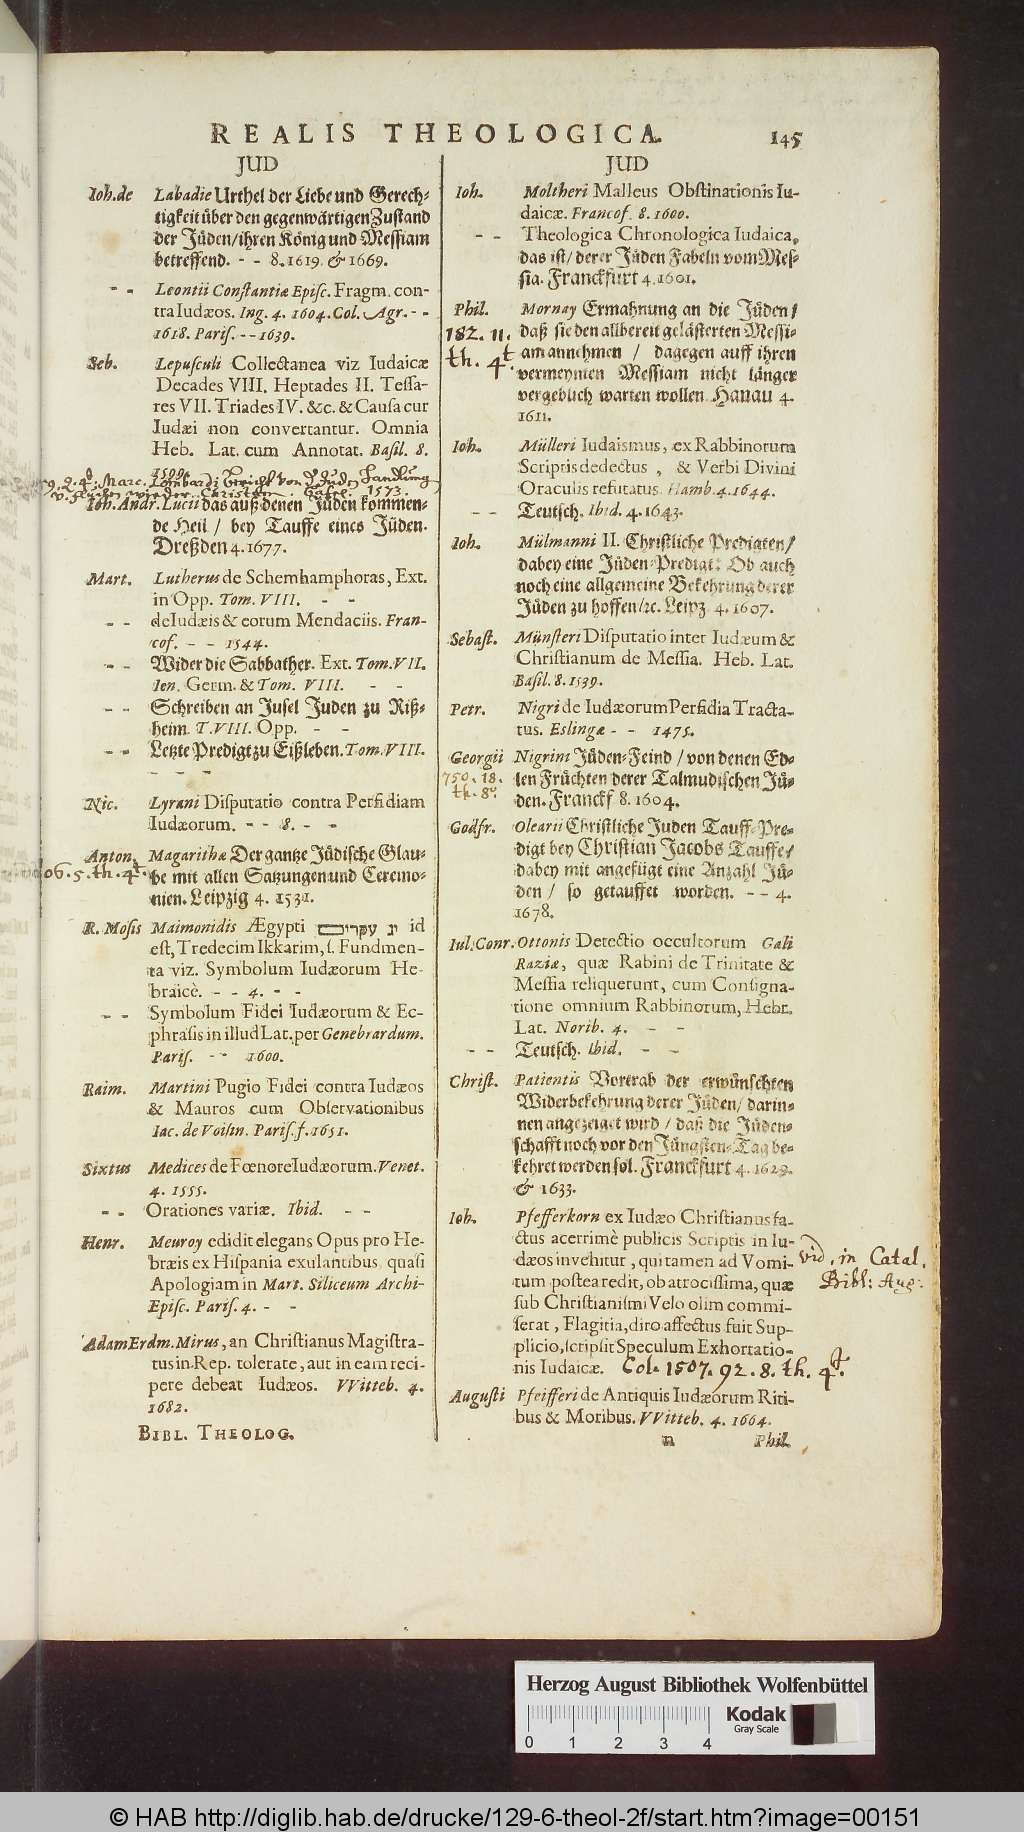 REALIS THEOLOGICA.
145
JUD
Ioh. de Labadie Urthel der Liebe und Gerech-
tigkeit über den gegenwärtigen Zustand
der Jüden/ihren König und Messiam
betreffend. - - 8. 1619. & 1669.
- - Leontii Constantiæ Episc. Fragm. con-
tra Iudæos. Ing. 4. 1604. Col. Agr. - -
1618. Paris. - - 1639.
Seb. Lepusculi Collectanea viz Iudaicæ
Decades VIII. Heptades II. Tessa-
res VII. Triades IV. &c. & Causa cur
Iudæi non convertantur. Omnia
Heb. Lat. cum Annotat. Basil. 8.
Marc. Lombardi Bericht von
Christen. Basel. 1573.
Ioh. Andr. Lucii das auß denen Jüden kommen-
de Heil / bey Tauffe eines Jüden.
Dreßden 4. 1677.
Mart. Lutherus de Schemhamphoras, Ext.
in Opp. Tom. VIII. - -
- - de Iudæis & eorum Mendaciis. Fran-
cof. - - 1544.
- - Wider die Sabbather. Ext. Tom. VII.
Ien. Germ. & Tom. VIII. - -
- - Schreiben an Jusel Juden zu Riß-
heim. T. VIII. Opp. - -
- - Letzte Predigt zu Eißleben. Tom. VIII.
- - -
Nic. Lyrani Disputatio contra Perfidiam
Iudæorum. - - 8. - -
Anton. Magarithæ Der gantze Jüdische Glau-
06. 5. th. 4t. be mit allen Satzungen und Ceremo-
nien. Leipzig 4. 1531.
R. Mosis Maimonidis Ægypti יג עקרים id
est, Tredecim Ikkarim, s. Fundmen-
ta viz. Symbolum Iudæorum He-
braicè. - - 4. - -
- - Symbolum Fidei Iudæorum & Ec-
phrasis in illud Lat. per Genebrardum.
Paris. - - 1600.
Raim. Martini Pugio Fidei contra Iudæos
& Mauros cum Observationibus
Iac. de Voisin. Paris. f. 1651.
Sixtus Medices de Fœnore Iudæorum. Venet.
4. 1555.
- - Orationes variæ. Ibid. - -
Henr. Meuroy edidit elegans Opus pro He-
bræis ex Hispania exulantibus, quasi
Apologiam in Mart. Siliceum Archi-
Episc. Paris. 4. - -
Adam Erdm. Mirus, an Christianus Magistra-
tus in Rep. tolerate, aut in eam reci-
pere debeat Iudæos. VVitteb. 4.
1682.
BIBL. THEOLOG.
JUD
Ioh. Moltheri Malleus Obstinationis Iu-
daicæ. Francof. 8. 1600.
- - Theologica Chronologica Iudaica,
das ist/ derer Jüden Fabeln vom Mes-
sia. Franckfurt 4. 1601.
Phil. Mornay Ermahnung an die Jüden/
182. 11. daß sie den allbereit gelästerten Messi-
th. 4t. am annehmen / dagegen auff ihren
vermeynten Messiam nicht länger
vergeblich warten wollen. Hanau 4.
1611.
Ioh. Mülleri Iudaismus, ex Rabbinorum
Scriptis dedectus, & Verbi Divini
Oraculis refutatus. Hamb. 4. 1644.
- - Teutsch. Ibid. 4. 1643.
Ioh. Mülmanni II. Christliche Predigten/
dabey eine Jüden-Predigt: Ob auch
noch eine allgemeine Bekehrung derer
Jüden zu hoffen/ꝛc. Leipz. 4. 1607.
Sebast. Münsteri Disputatio inter Iudæum &
Christianum de Messia. Heb. Lat.
Basil. 8. 1539.
Petr. Nigri de Iudæorum Perfidia Tracta-
tus. Eslingæ - - 1475.
Georgii Nigrini Jüden-Feind / von denen Ed-
750. 18. len Früchten derer Talmudischen Jü-
th. 8o. den. Franckf. 8. 1604.
Godfr. Olearii Christliche Juden Tauff-Pre-
digt bey Christian Jacobs Tauffe/
dabey mit angefügt eine Anzahl Jü-
den / so getauffet worden. - - 4.
1678.
Iul. Conr. Ottonis Detectio occultorum Gali
Raziæ, quæ Rabini de Trinitate &
Messia reliquerunt, cum Consigna-
tione omnium Rabbinorum, Hebr.
Lat. Norib. 4. - -
- - Teutsch. Ibid. - -
Christ. Patientis Vortrab der erwünschten
Widerbekehrung derer Jüden/ darin-
nen angezeiget wird / daß die Jüden-
schafft noch vor den Jüngsten-Tag be-
kehret werden sol. Franckfurt 4. 1629.
& 1633.
Ioh. Pfefferkorn ex Iudæo Christianus fa-
ctus acerrimè publicis Scriptis in Iu-
dæos invehitur, qui tamen ad Vomi-
tum postea redit, ob atrocissima, quæ
sub Christianismi Velo olim commi-
serat, Flagitia, diro affectus fuit Sup-
plicio, scripsit Speculum Exhortatio-
nis Iudaicæ. Col. 1507. 92. 8. th. 4t.
vid. in Catal.
Bibl: Aug:
Augusti Pfeifferi de Antiquis Iudæorum Riti-
bus & Moribus. VVitteb. 4. 1664.
n Phil.
Herzog August Bibliothek Wolfenbüttel
Kodak
Gray Scale
0 1 2 3 4
© HAB http://diglib.hab.de/drucke/129-6-theol-2f/start.htm?image=00151